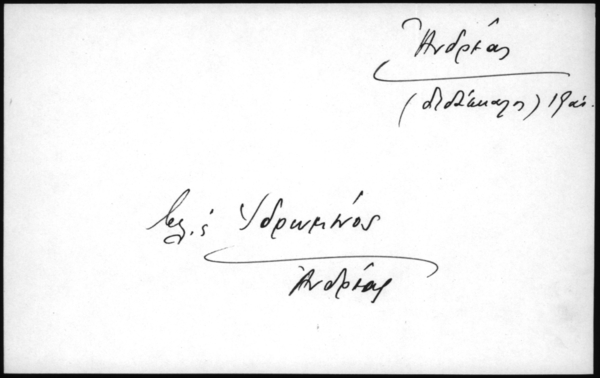 Ἀνδρέας
(διδάσκαλος) 19 αἰ.
Ὑδρωμένος
Ἀνδρέας